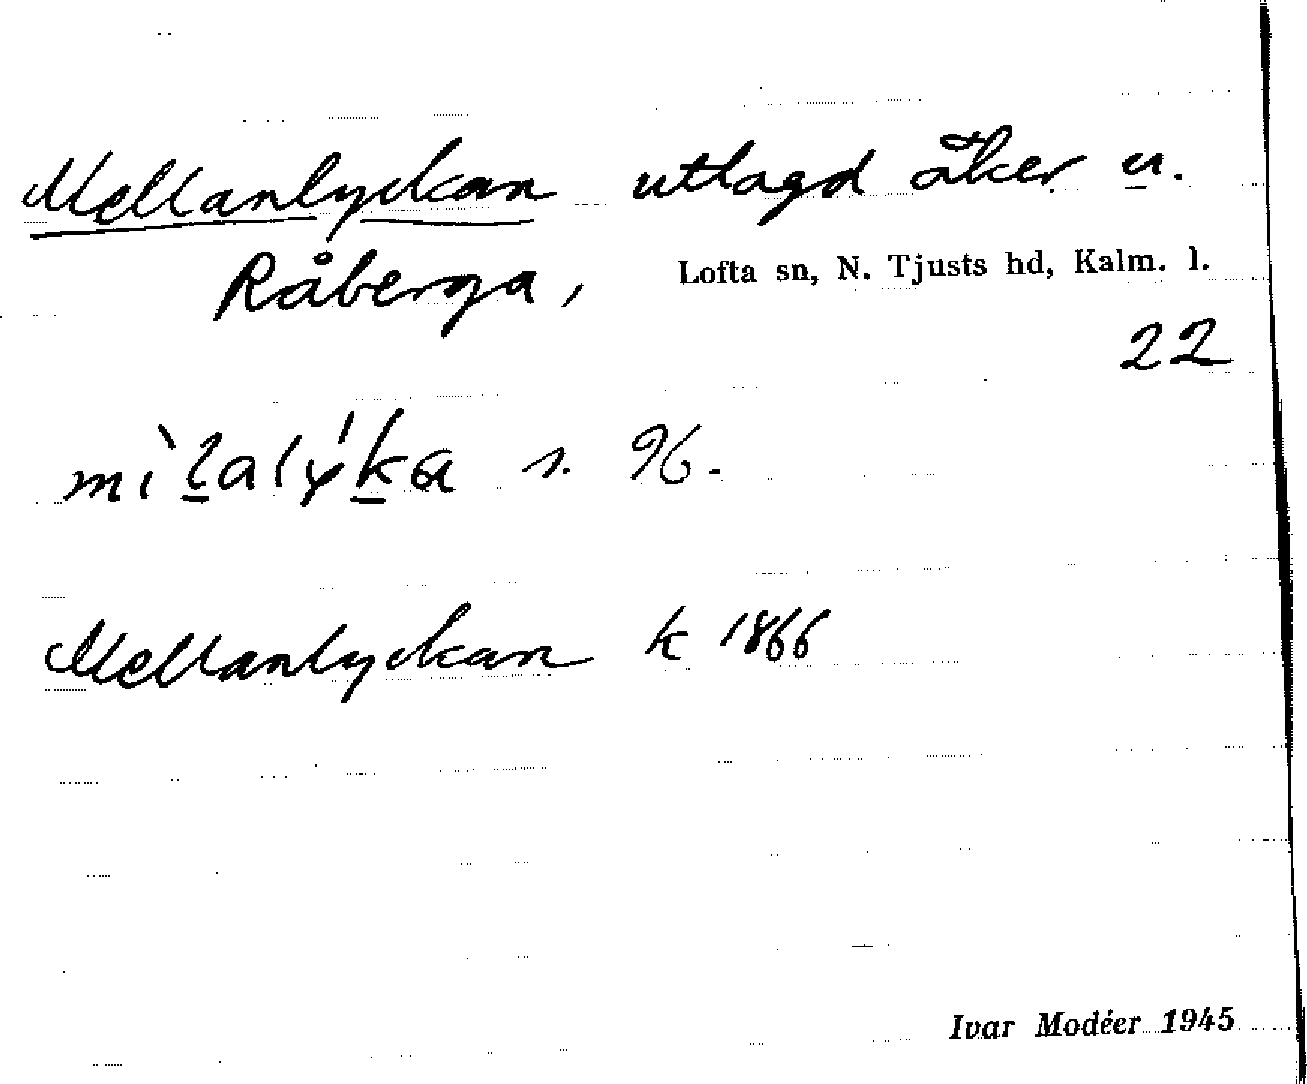 Mellanlyckan utlagd åker u.
Råberga, Lofta sn, N. Tjusts hd, Kalm. l.
22
mìlalýka s. 96.
Mellanlyckan k 1866
Ivar Modéer 1945